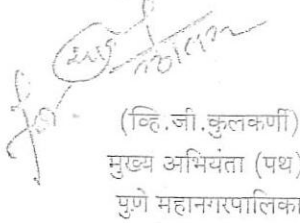 (व्हि.जी.कुलकर्णी)
मुख्य अभियंता (पथ)
पुणे महानगरपालिका